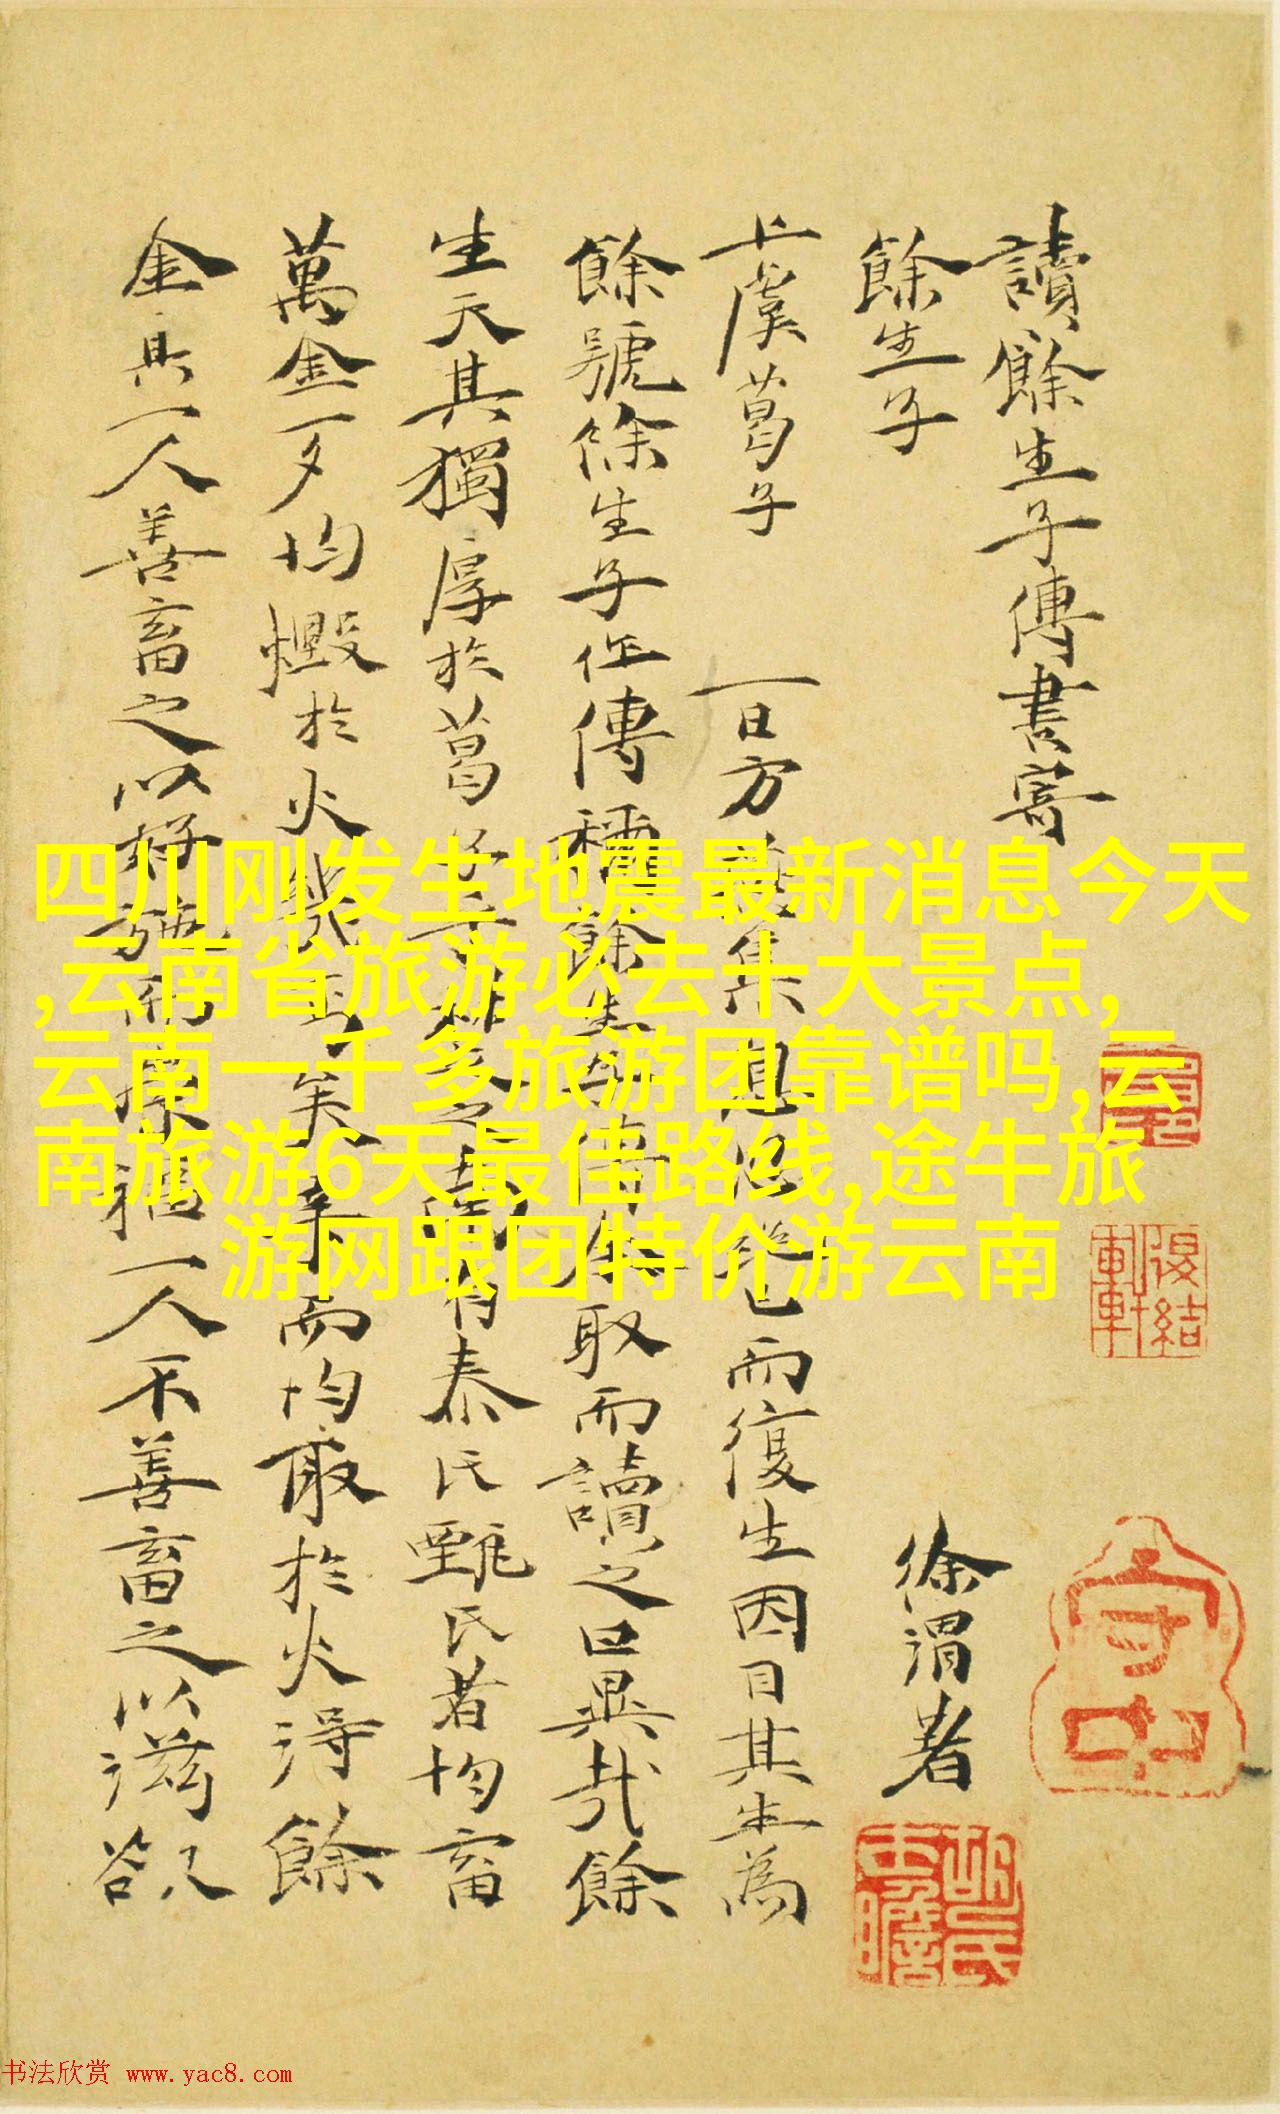 讀餘生子傳書寄
餘生子
徐渭著
上虞葛子
一日方
集
息
已而復生因曰其生為
餘號餘生子作傳
種餘生子傳
取而讀之曰異哉餘
生天其獨厚於葛子
有秦氏甄氏者均畜
萬金一夕均燬於火
矣
而均取於火得餘
金其一人善畜之以
福一人不善畜之以滋欲
四川刚发生地震最新消息今天
,云南省旅游必去十大景点,
云南一千多旅游团靠谱吗,云
南旅游6天最佳路线,途牛旅
游网跟团特价游云南
復結
守中
书法欣赏 www.yac8.com